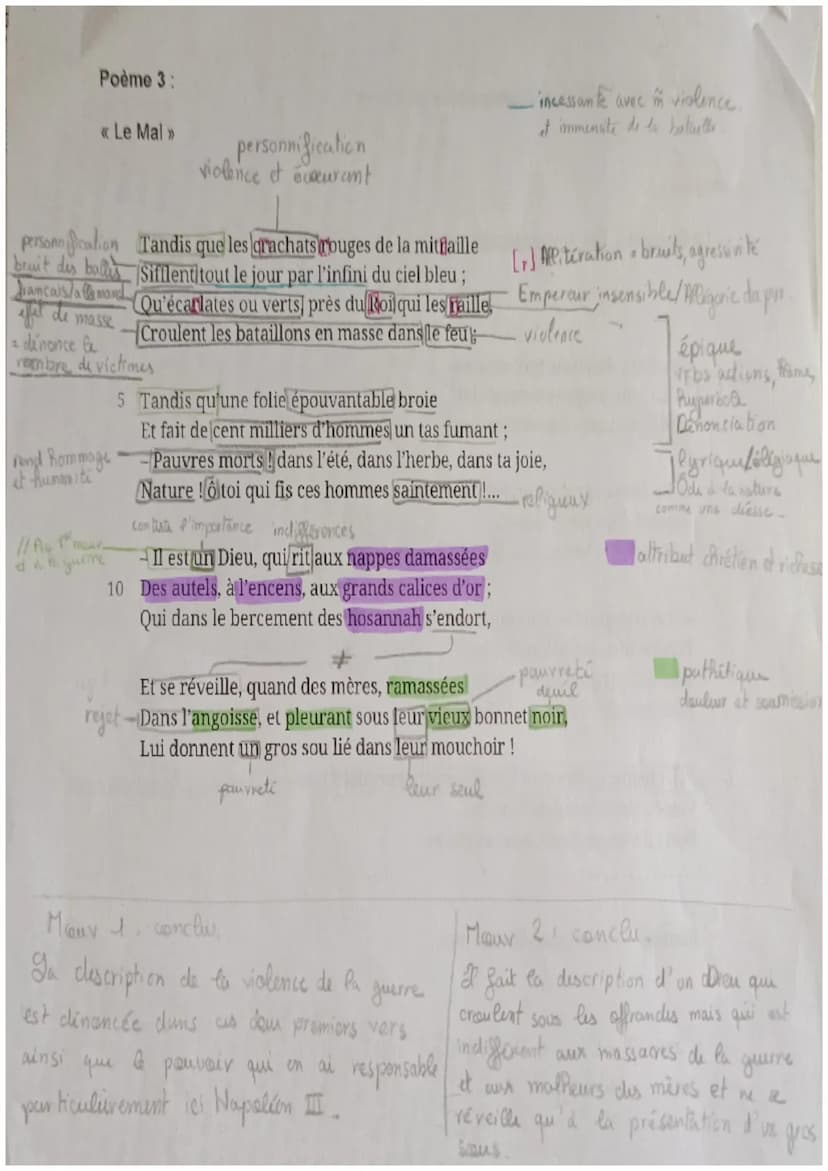 Poème 3 :
incessante avec m̃ violence
et immensité de la bataille
« Le Mal »
personnification
violence et écœurant
personnification
bruit des balles
francais/allemand
effet de masse
= dénonce le
nombre de victimes
Tandis que les crachats rouges de la mitraille
Sifflent tout le jour par l'infini du ciel bleu ;
Qu'écarlates ou verts, près du Roi qui les raille,
Croulent les bataillons en masse dans le feu ;
[r] Allitération = bruits, agressivité
Empereur insensible/Allégorie du
violence
épique
verbs actions,
hyperbole
Dénonciation
5 Tandis qu'une folie épouvantable broie
Et fait de cent milliers d'hommes un tas fumant ;
– Pauvres morts ! dans l'été, dans l'herbe, dans ta joie,
Nature ! ô toi qui fis ces hommes saintement !...
rend hommage
et humanité
religieux
lyrique/élégiaque
Ode à la nature
comme une déesse.
contraste l'importance indifférences
// Au 1er mouv
et à la guerre
– Il est un Dieu, qui rit aux nappes damassées
10 Des autels, à l'encens, aux grands calices d'or ;
Qui dans le bercement des hosannah s'endort,
attribut chrétien et richesse
≠
Et se réveille, quand des mères, ramassées
Dans l'angoisse, et pleurant sous leur vieux bonnet noir,
Lui donnent un gros sou lié dans leur mouchoir !
rejet
pauvreté
deuil
pathétique
douleur et soumission
pauvreté
leur seul
Mouv 1. conclu.
La description de la violence de la guerre
est dénoncée dans ces deux premiers vers
ainsi que le pouvoir qui en ai responsable
particulièrement ici Napoléon III.
Mouv 2 : conclu.
Il fait la description d'un Dieu qui
croulent sous les offrandes mais qui est
indifférent aux massacres de la guerre
et aux malheurs des mères et ne se
réveille qu'à la présentation d'un gros
sous.